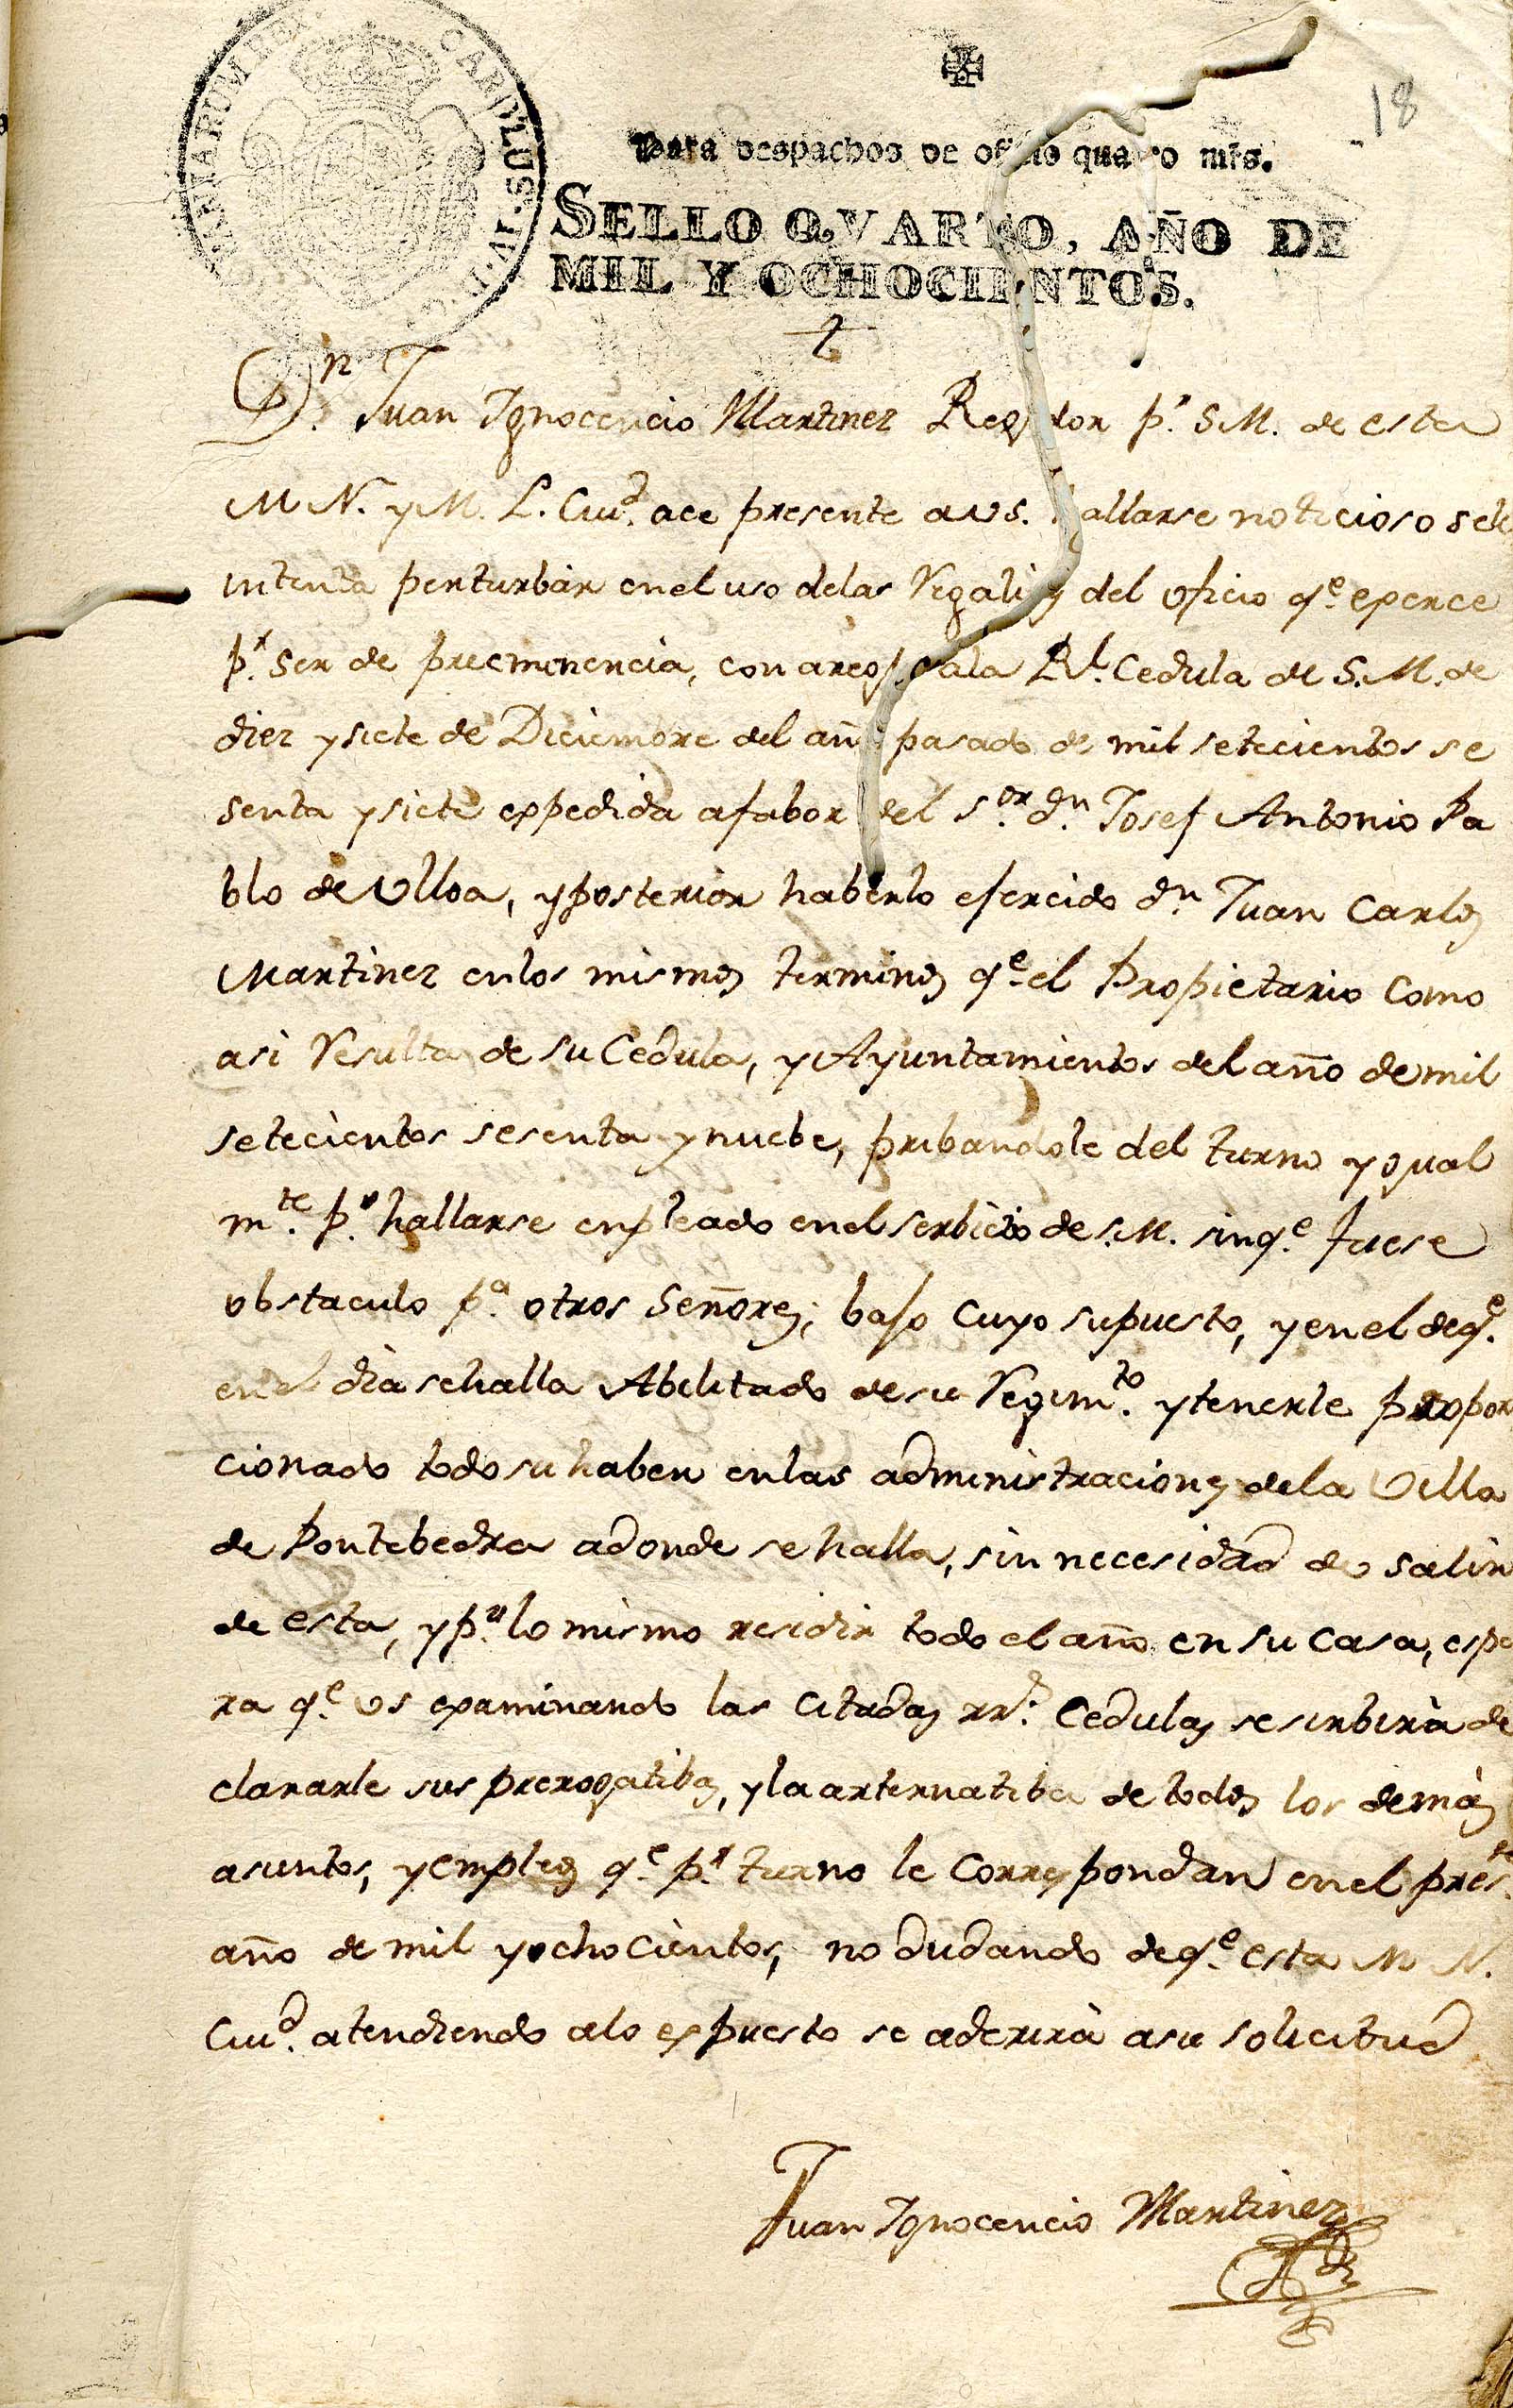 18
Para despachos de oficio quatro mrs.
SELLO QVARTO, AÑO DE
MIL Y OCHOCIENTOS.
CAROLUS IV
Dn. Juan Ygnocencio Martinez Regidor pr. S.M. de esta
M N. y M. L. Ciud. ace presente a vs. hallarse noticioso sele
intenta perturbar en el uso delas Regalias del oficio qe. exerce
pr. ser de preeminencia, con areglo ala Rl. Cedula de S.M. de
diez y siete de Diciembre del año pasado de mil setecientos se
senta y siete expedida a fabor del sor. dn. Josef Antonio Pa
blo de Ulloa, y posterior haberlo ejercido dn. Juan Carlos
Martinez en los mismos terminos qe. el Propietario como
asi Resulta de su Cedula, y Ayuntamientos del año de mil
setecientos sesenta y nuebe, pribandole del turno ygual
mte. pr. hallarse enpleado en el serbicio de S.M. sin qe. fuese
obstaculo pa. otros Señores; bajo cuyo supuesto, y en el de qe.
en el dia se halla Abilitado de su Regimto. y tenerle propor
cionado todo su haber en las administraciones de la Villa
de Pontebedra adonde se halla, sin necesidad de salir
de esta, y pr. lo mismo residir todo el año en su casa, espe
ra qe. vs examinando las citadas rrs. Cedulas se serbirà de
clararle sus prerogatibas, y la arternatiba de todos los demàs
asuntos, y empleos qe. pr. turno le correspondan en el preste.
año de mil y ochocientos, no dudando de qe. esta M N.
Ciud. atendiendo alo expuesto se aderirà a su solicitud
Juan Ygnocencio Martinez